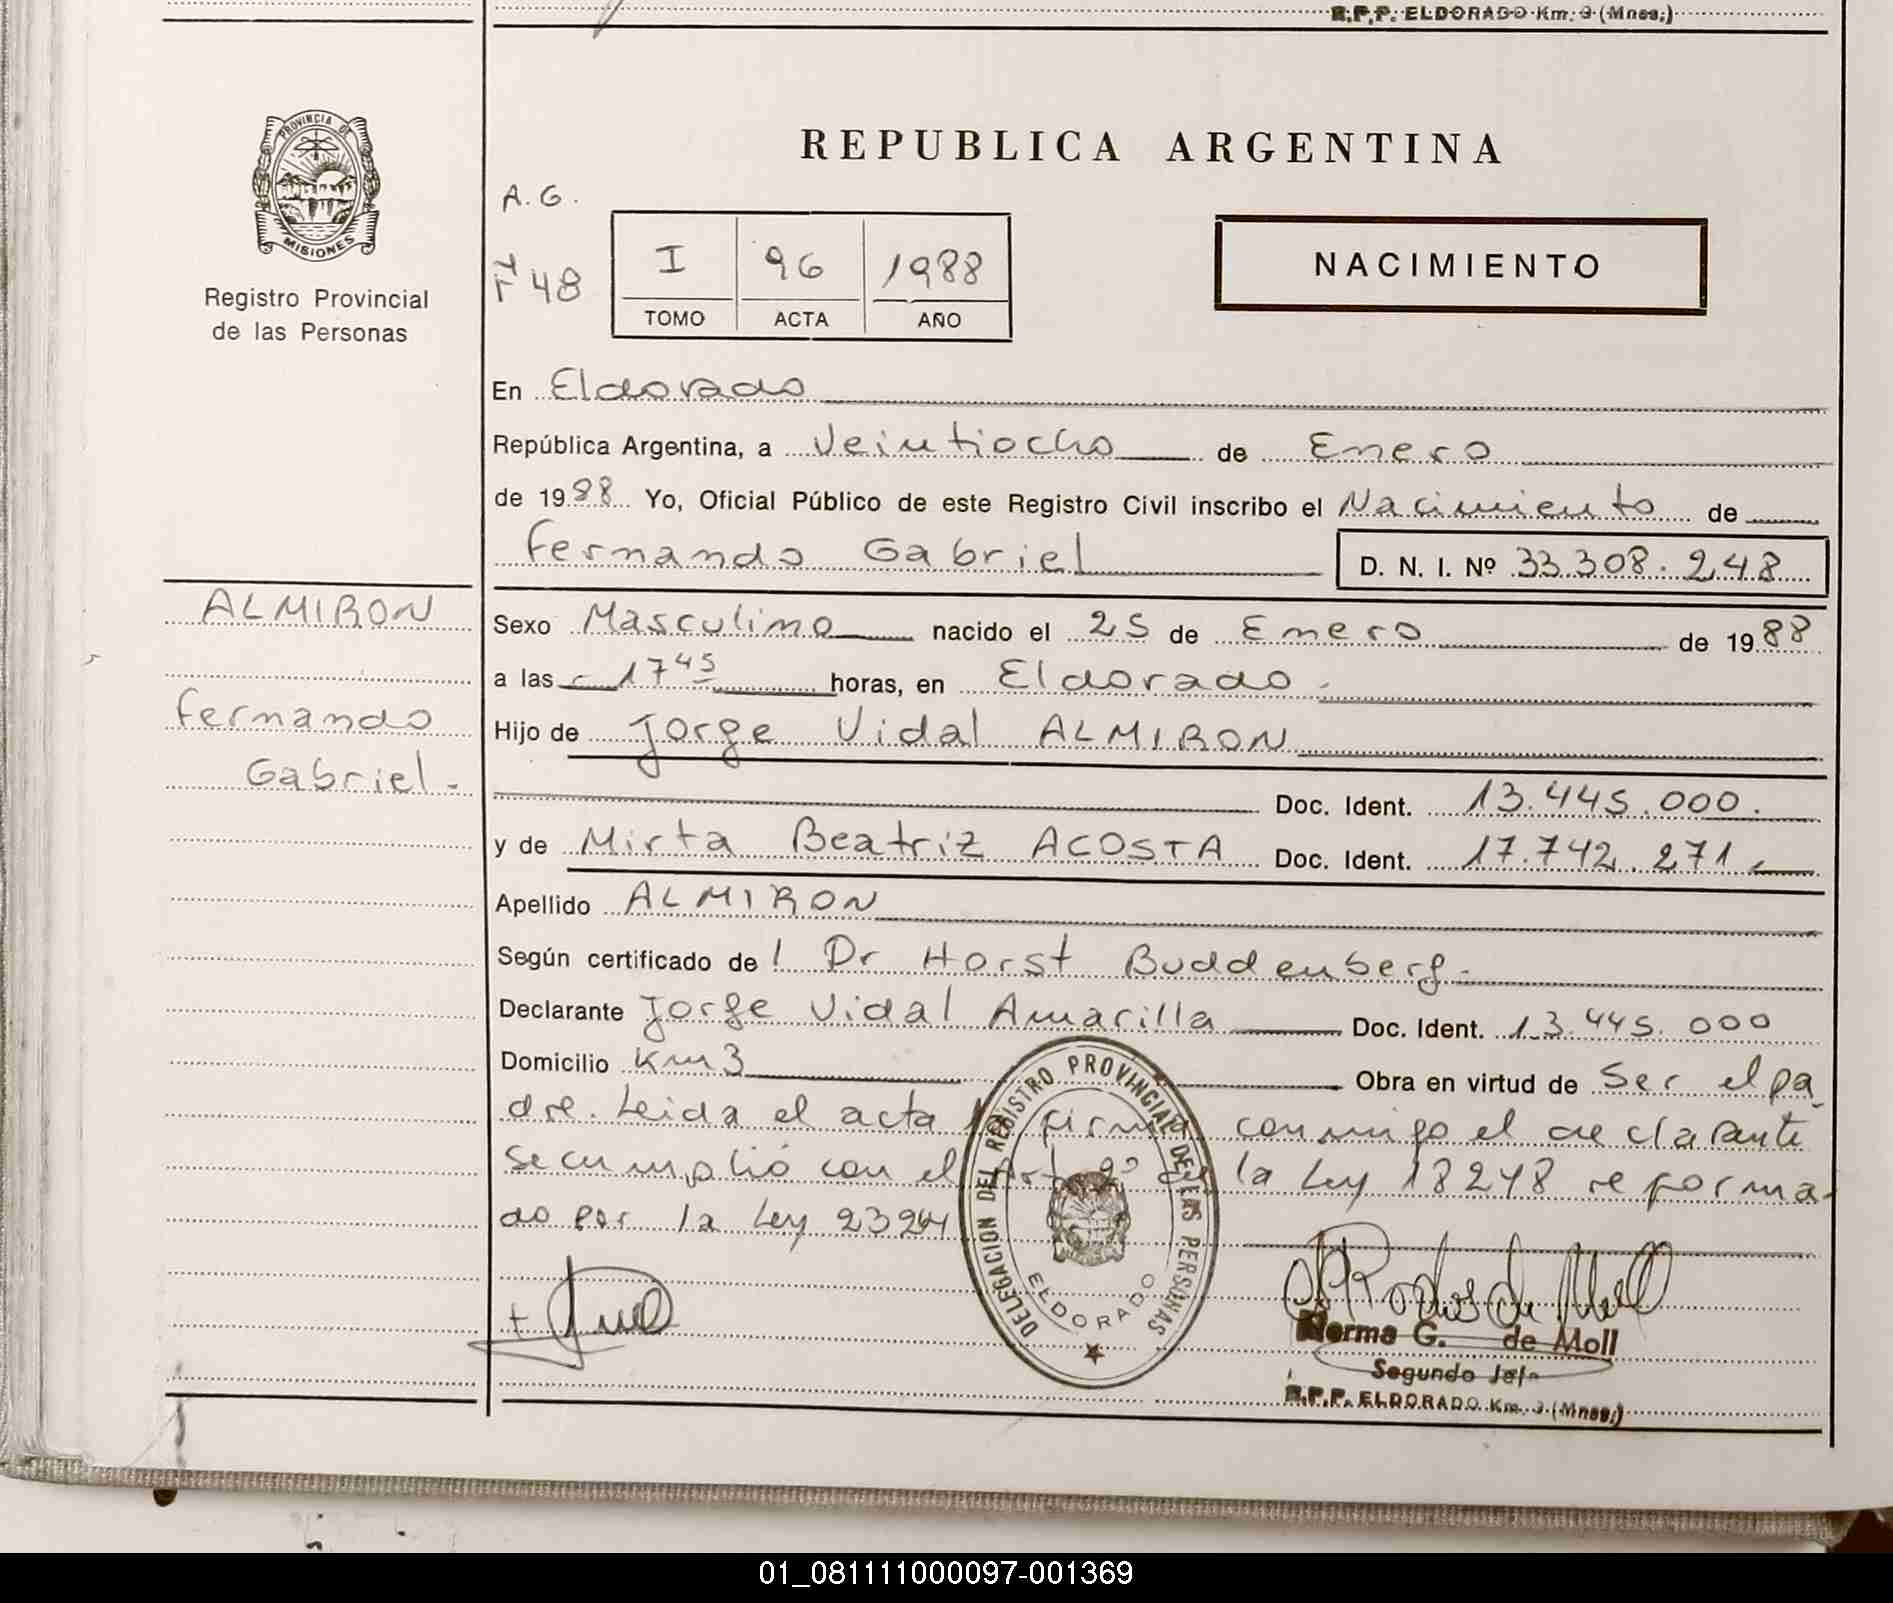 R.P.P. ELDORADO Km. 9 (Mnes.)
PROVINCIA DE
MISIONES
Registro Provincial
de las Personas
REPUBLICA ARGENTINA
A.G.
Fº 48
I 96 1988
TOMO ACTA AÑO
NACIMIENTO
En Eldorado
República Argentina, a Veintiocho de Enero
de 1988 Yo, Oficial Público de este Registro Civil inscribo el Nacimiento de
Fernando Gabriel D. N. I. Nº 33.308.248
ALMIRON
Fernando
Gabriel.-
Sexo Masculino nacido el 25 de Enero de 1988
a las 17 45 horas, en Eldorado.
Hijo de Jorge Vidal ALMIRON
Doc. Ident. 13.445.000.
y de Mirta Beatriz ACOSTA Doc. Ident. 17.742.271
Apellido ALMIRON
Según certificado de l Dr Horst Buddenberg.
Declarante Jorge Vidal Amarilla Doc. Ident. 13.445.000
Domicilio Km 3 Obra en virtud de Ser el pa
dre. Leida el acta firma conmigo el declarante
se cumplió con el Art. 2º de la Ley 18248 reforma-
do por la Ley 23264
DELEGACION DEL REGISTRO PROVINCIAL DE LAS PERSONAS
ELDORADO
Norma G. de Moll
Segundo Jefe
R.P.P. ELDORADO Km. 9 (Mnes.)
01_081111000097-001369